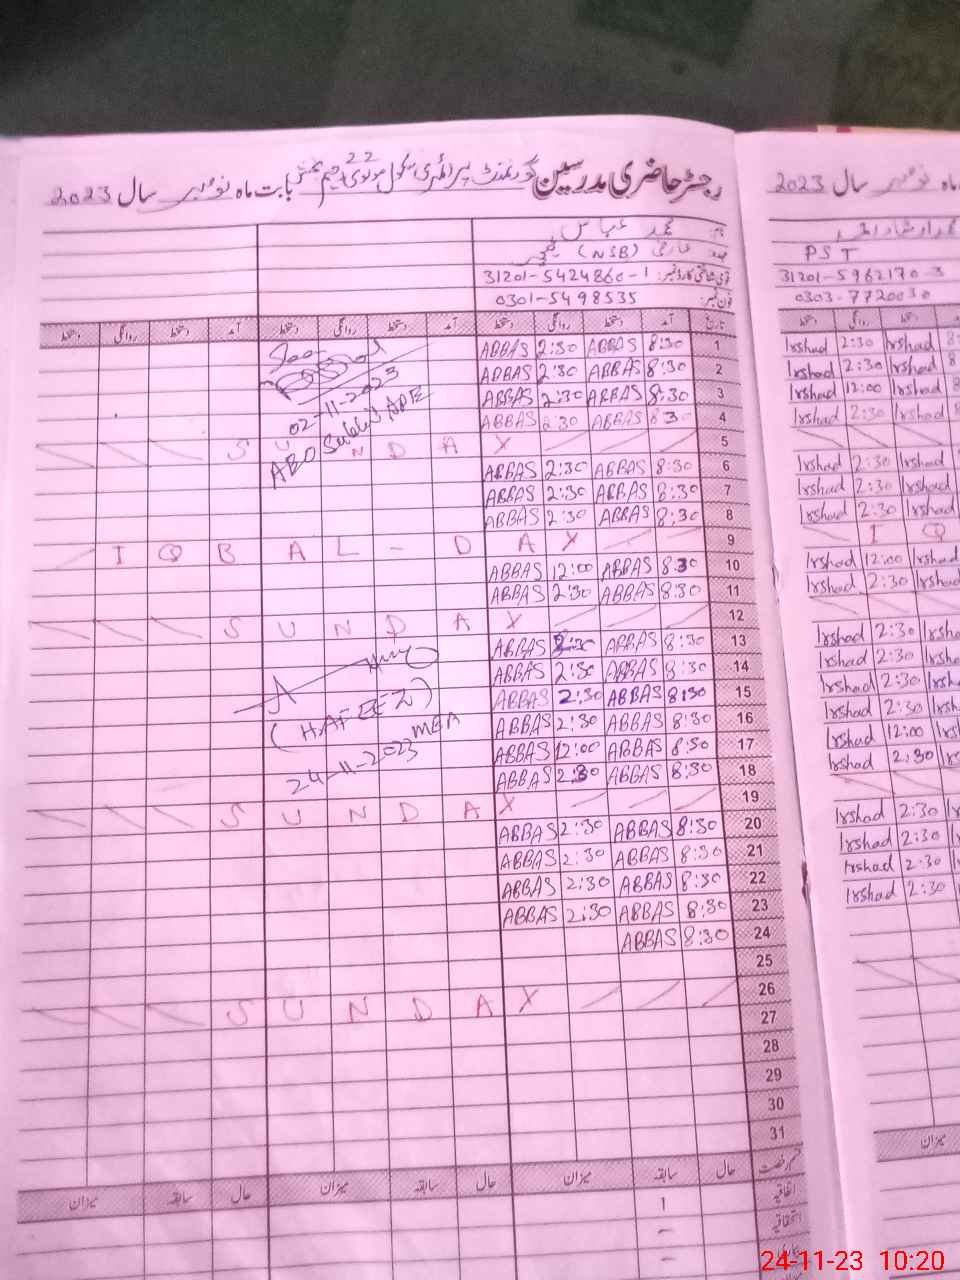 رجسٹر حاضری مدرسین گورنمنٹ پرائمری سکول مولوی رحیم بخش بابت ماہ نومبر سال 2023
نام: محمد عباس
عہدہ: عارضی (NSB) ٹیچر
قومی شناختی کارڈ نمبر: 31201-5424860-1
فون نمبر: 0301-5498535
تاریخ آمد دستخط روانگی دستخط آمد دستخط روانگی دستخط آمد دستخط روانگی دستخط
1 8:30 ABBAS 2:30 ABBAS
2 8:30 ABBAS 2:30 ABBAS
3 8:30 ABBAS 2:30 ABBAS
4 8:30 ABBAS 2:30 ABBAS
02-11-2023
5 SUNDAY
6 8:30 ABBAS 2:30 ABBAS
7 8:30 ABBAS 2:30 ABBAS
8 8:30 ABBAS 2:30 ABBAS
9 IQBAL-DAY
10 8:30 ABBAS 12:00 ABBAS
11 8:30 ABBAS 2:30 ABBAS
12 SUNDAY
13 8:30 ABBAS 2:30 ABBAS
14 8:30 ABBAS 2:30 ABBAS
15 8:30 ABBAS 2:30 ABBAS
(HAFEEZ)
16 8:30 ABBAS 2:30 ABBAS
MEA
17 8:30 ABBAS 12:00 ABBAS
24-11-2023
18 8:30 ABBAS 2:30 ABBAS
19 SUNDAY
20 8:30 ABBAS 2:30 ABBAS
21 8:30 ABBAS 2:30 ABBAS
22 8:30 ABBAS 2:30 ABBAS
23 8:30 ABBAS 2:30 ABBAS
24 8:30 ABBAS
25
26 SUNDAY
27
28
29
30
31
قسم رخصت حال سابقہ میزان حال سابقہ میزان حال سابقہ میزان
اتفاقیہ 1
استحقاقیہ -
ماہ نومبر سال 2023
محمد ارشاد احمد
PST
31201-5962170-3
0303-7720030
روانگی دستخط
Irshad 2:30 Irshad
Irshad 2:30 Irshad
Irshad 12:00 Irshad
Irshad 2:30 Irshad
Irshad 2:30 Irshad
Irshad 2:30 Irshad
Irshad 2:30 Irshad
I Q
Irshad 12:00 Irshad
Irshad 2:30 Irshad
Irshad 2:30
Irshad 2:30
Irshad 2:30
Irshad 2:30
Irshad 12:00
Irshad 2:30
Irshad 2:30
Irshad 2:30
Irshad 2:30
Irshad 2:30
میزان
24-11-23 10:20